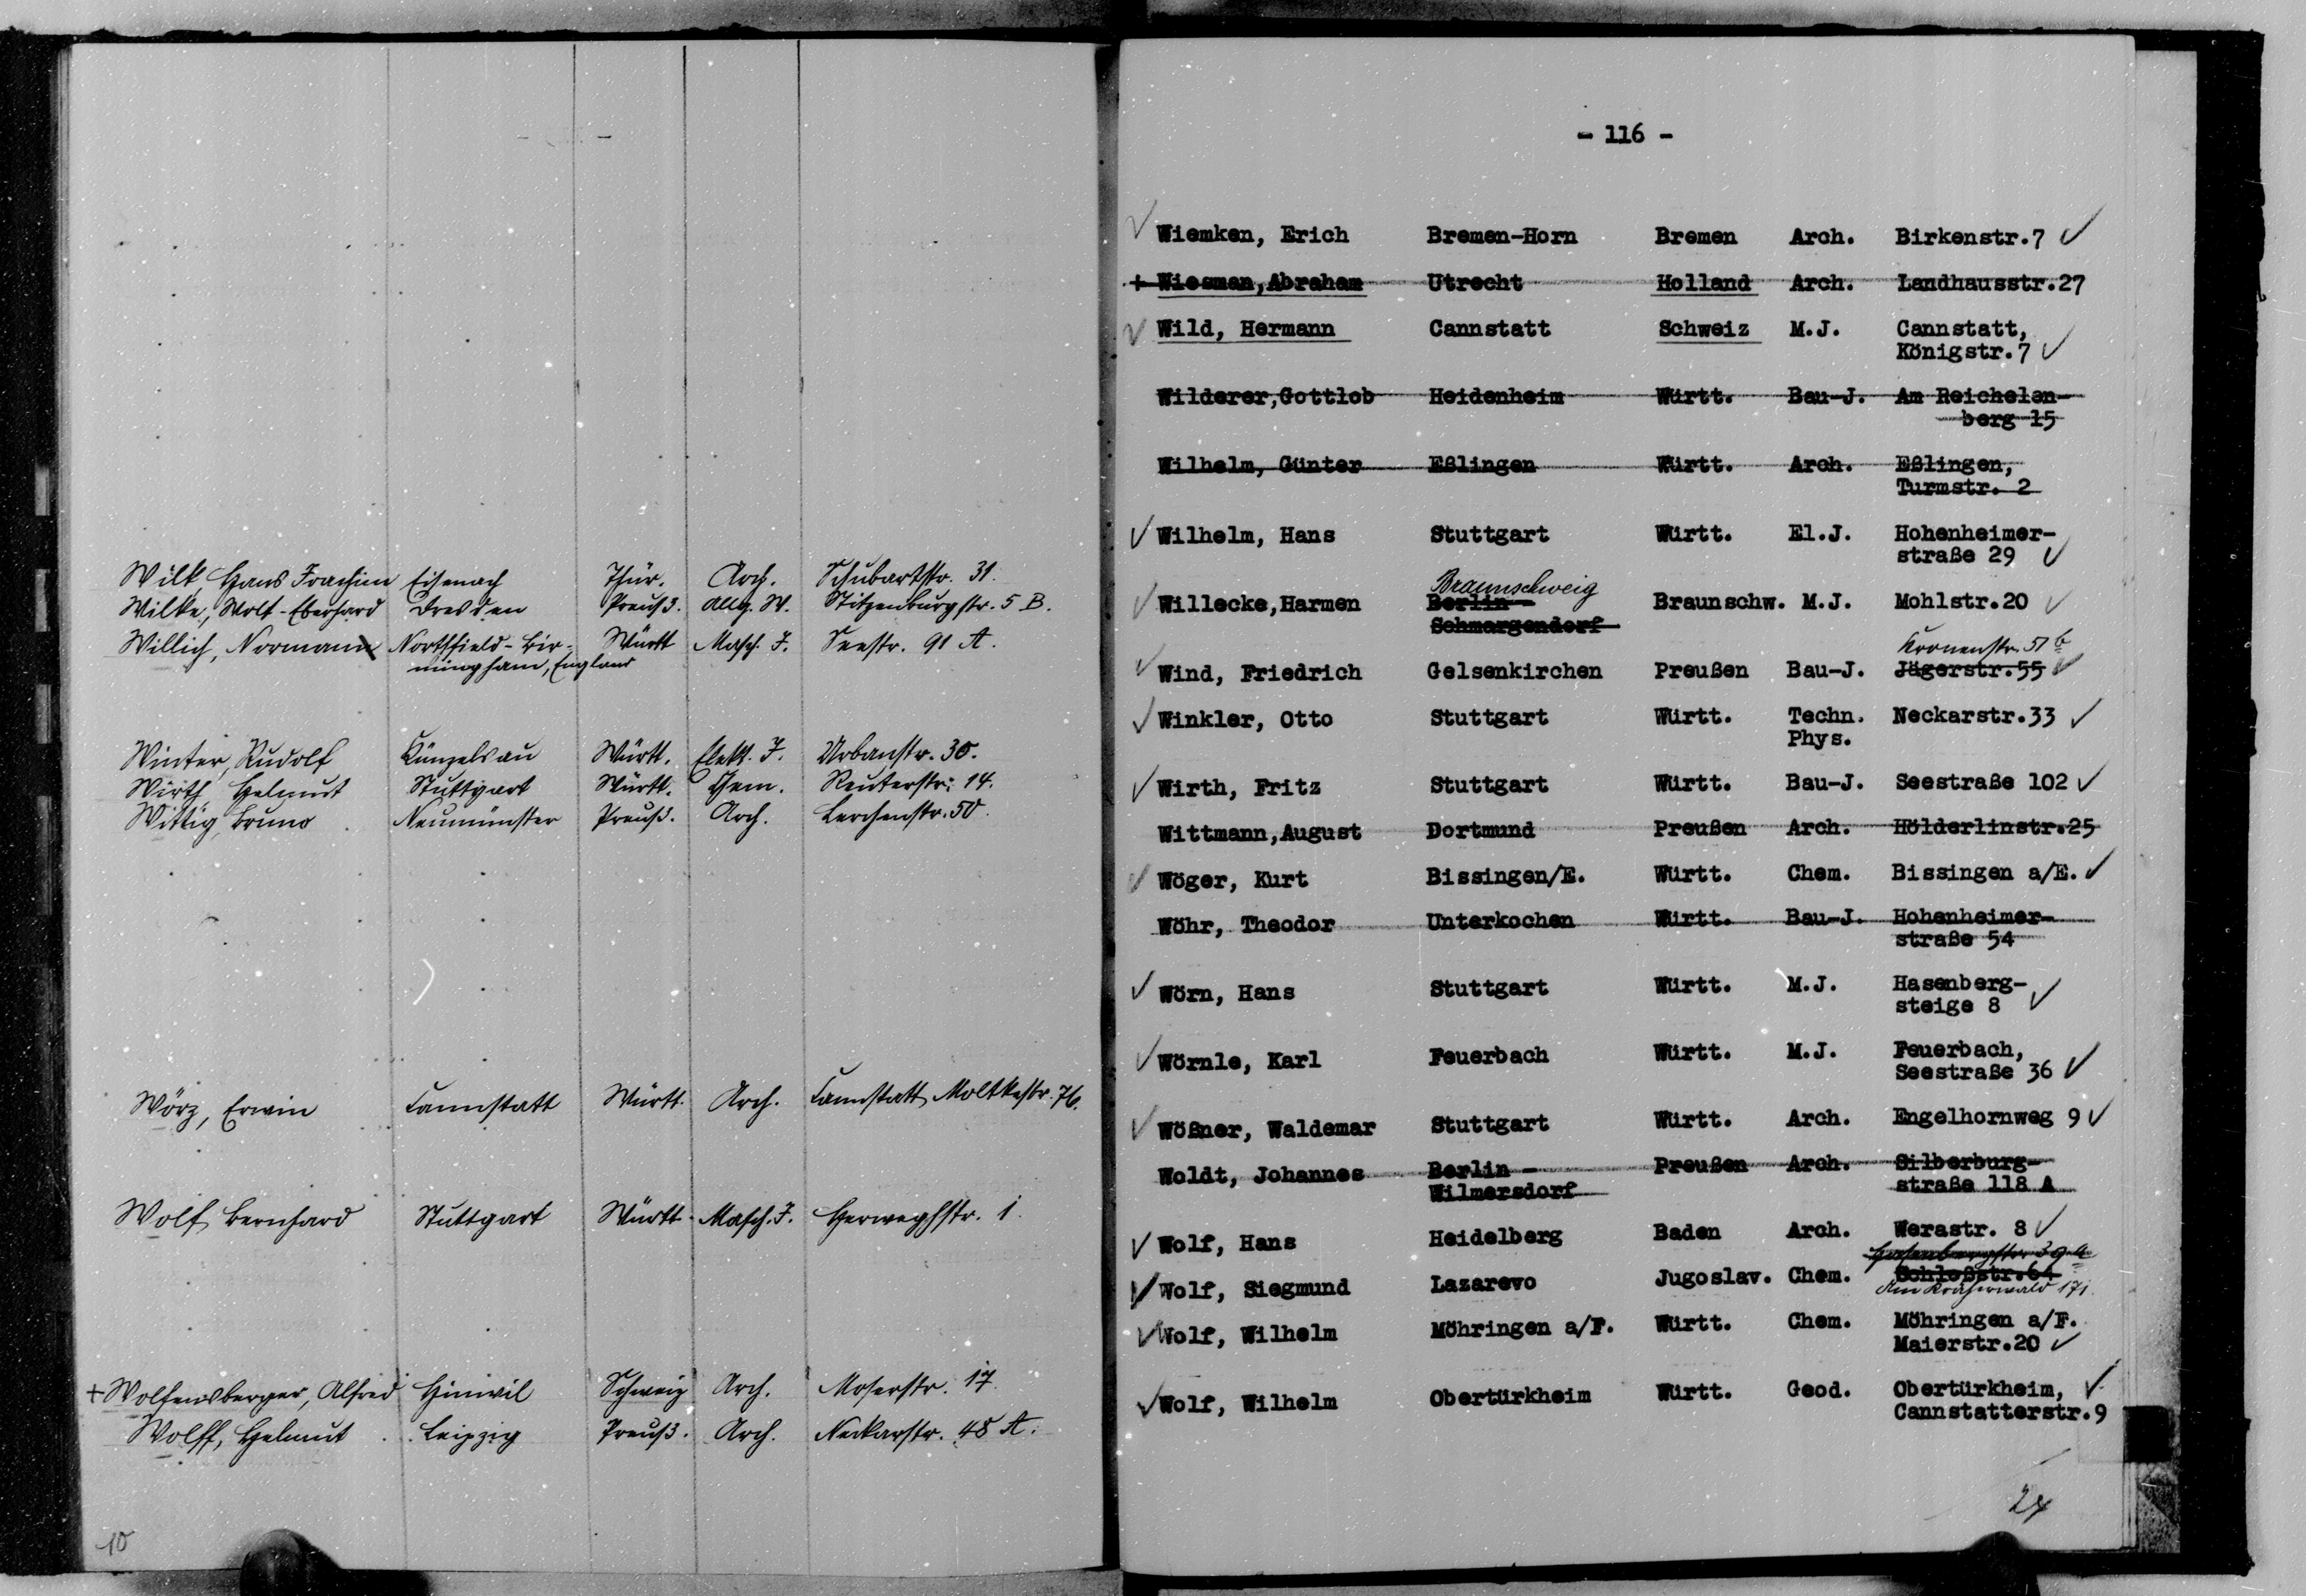 Wilk, Hans Joachim Eisenach Thür. Arch. Schubartstr. 31.
Wilke, Wolf-Eberhard Dresden Preuß. Allg. W. Stitzenburgstr. 5 B.
Willich, Norman Northfield-Bir- Württ Masch. J. Seestr. 91 A.
mingham, England
Winter, Rudolf Künzelsau Württ. Elekt. J. Urbanstr. 30.
Wirth, Helmut Stuttgart Württ. Chem. Reuterstr. 14.
Wittig, Bruno Neumünster Preuß. Arch. Lerchenstr. 50.
Wörz, Erwin Cannstatt Württ. Arch. Cannstatt, Moltkestr. 76.
Wolf, Bernhard Stuttgart Württ. Masch. J. Herweghstr. 1.
+ Wolfensberger, Alfred Hinwil Schweiz Arch. Moserstr. 17.
Wolff, Helmut Leipzig Preuß. Arch. Neckarstr. 48 A.
10
- 116 -
✓ Wiemken, Erich Bremen-Horn Bremen Arch. Birkenstr.7 ✓
+ Wiesman,Abraham Utrecht Holland Arch. Landhausstr.27
✓ Wild, Hermann Cannstatt Schweiz M.J. Cannstatt,
Königstr.7 ✓
Wilderer,Gottlob Heidenheim Württ. Bau-J. Am Reichelen-
berg 15
Wilhelm, Günter Eßlingen Württ. Arch. Eßlingen,
Turmstr. 2
✓ Wilhelm, Hans Stuttgart Württ. El.J. Hohenheimer-
straße 29 ✓
Braunschweig
✓ Willecke,Harmen Berlin- Braunschw. M.J. Mohlstr.20 ✓
Schmargendorf
Kronenstr. 51 b
✓ Wind, Friedrich Gelsenkirchen Preußen Bau-J. Jägerstr.55 ✓
✓ Winkler, Otto Stuttgart Württ. Techn. Neckarstr.33 ✓
Phys.
✓ Wirth, Fritz Stuttgart Württ. Bau-J. Seestraße 102 ✓
Wittmann,August Dortmund Preußen Arch. Hölderlinstr.25
✓ Wöger, Kurt Bissingen/E. Württ. Chem. Bissingen a/E. ✓
Wöhr, Theodor Unterkochen Württ. Bau-J. Hohenheimer-
straße 54
✓ Wörn, Hans Stuttgart Württ. M.J. Hasenberg-
steige 8 ✓
✓ Wörnle, Karl Feuerbach Württ. M.J. Feuerbach,
Seestraße 36 ✓
✓ Wößner, Waldemar Stuttgart Württ. Arch. Engelhornweg 9 ✓
Woldt, Johannes Berlin - Preußen Arch. Silberburg-
Wilmersdorf straße 118 A
✓ Wolf, Hans Heidelberg Baden Arch. Werastr. 8 ✓
Hasenbergstr. 39
✓ Wolf, Siegmund Lazarevo Jugoslav. Chem. Schloßstr.64
Am Kräherwald 171.
✓ Wolf, Wilhelm Möhringen a/F. Württ. Chem. Möhringen a/F.
Maierstr.20 ✓
✓ Wolf, Wilhelm Obertürkheim Württ. Geod. Obertürkheim, ✓
Cannstatterstr.9
24